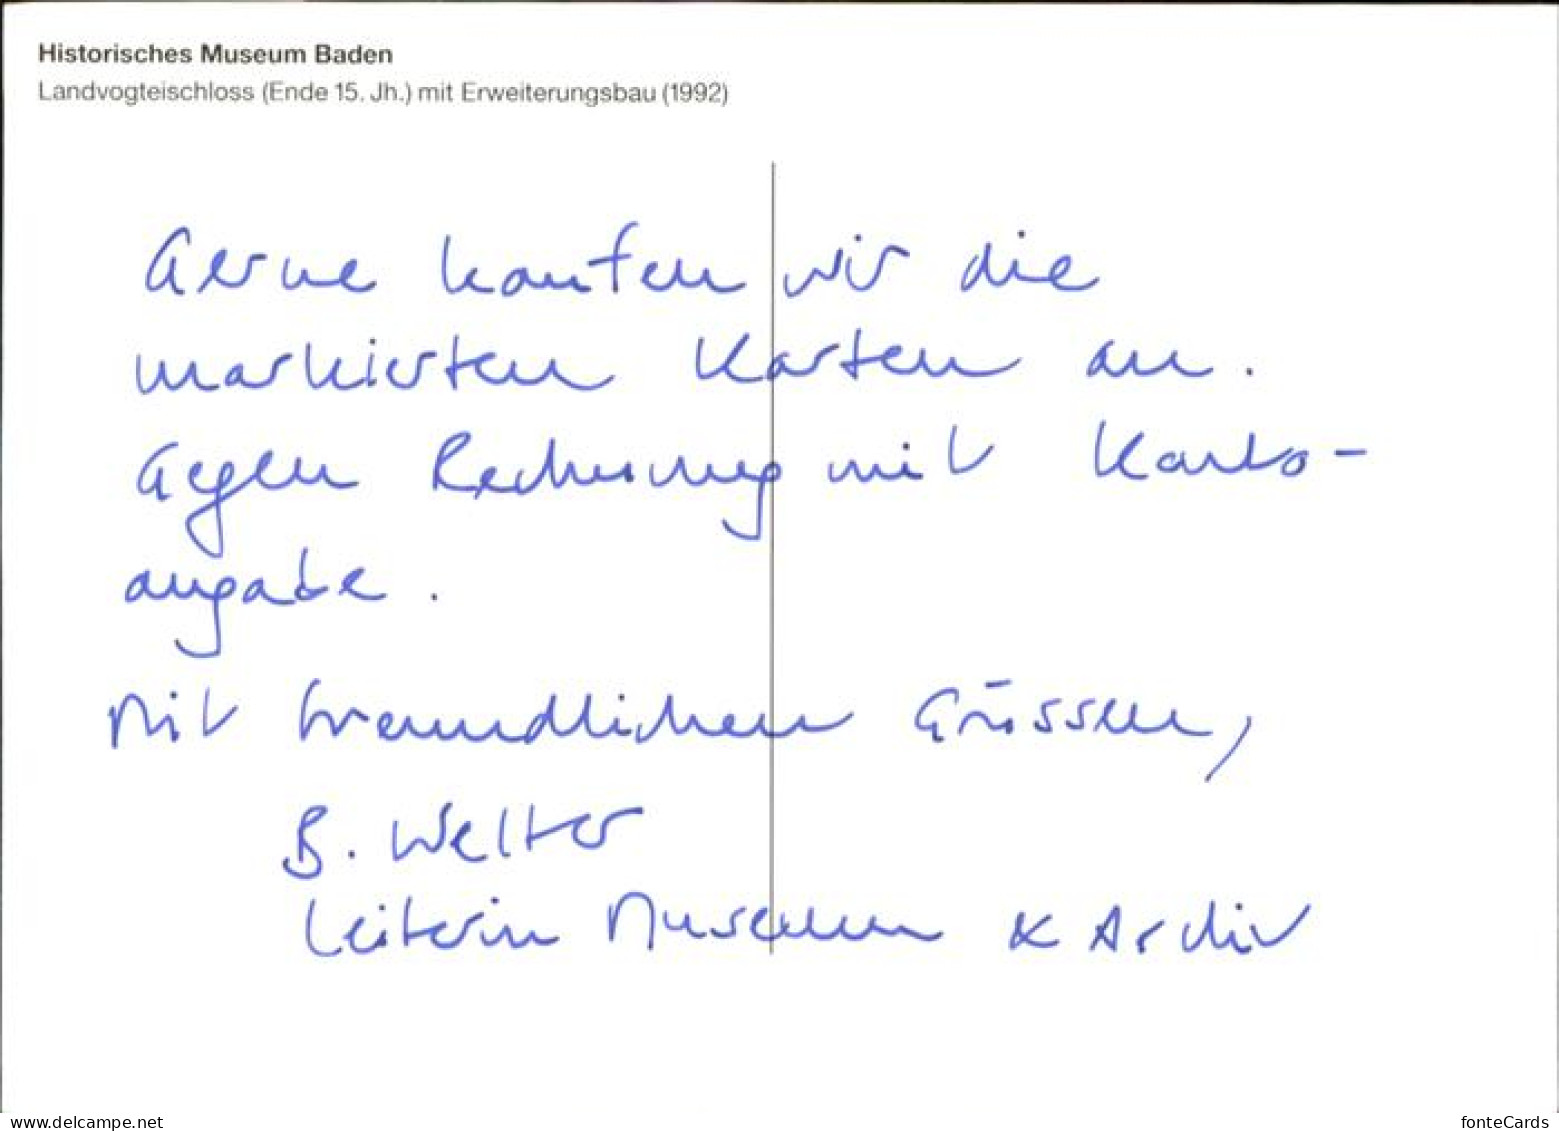 Historisches Museum Baden
Landvogteischloss (Ende 15. Jh.) mit Erweiterungsbau (1992)
Gerne kaufen wir die
markierten Karten an.
Gegen Rechnung mit Konto-
angabe.
Mit freundlichen Grüssen,
B. Welter
Leiterin Museum & Archiv
www.delcampe.net
fonteCards